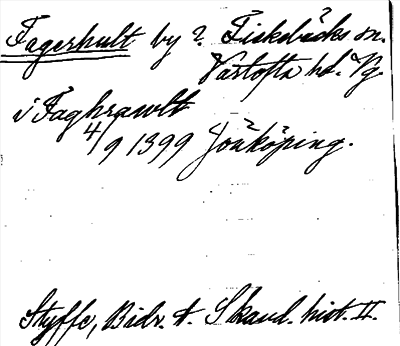 Fagerhult by ? Fiskebäcks sn.
Vartofta hd. Vg.
i Faghrawlt
4/9 1399 Jönköping.
Styffe, Bidr. t. Skand. hist. II.